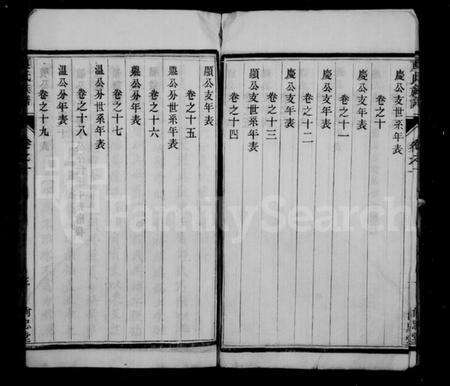 慶公支世系年表
卷之十
慶公支年表
卷之十一
慶公支世系年表
卷之十二
慶公支年表
卷之十三
顯公支世系年表
卷之十四
顯公支年表
卷之十五
顯公分世系年表
卷之十六
顯公分年表
卷之十七
溫公分世系年表
卷之十八
溫公分年表
卷之十九
FamilySearch